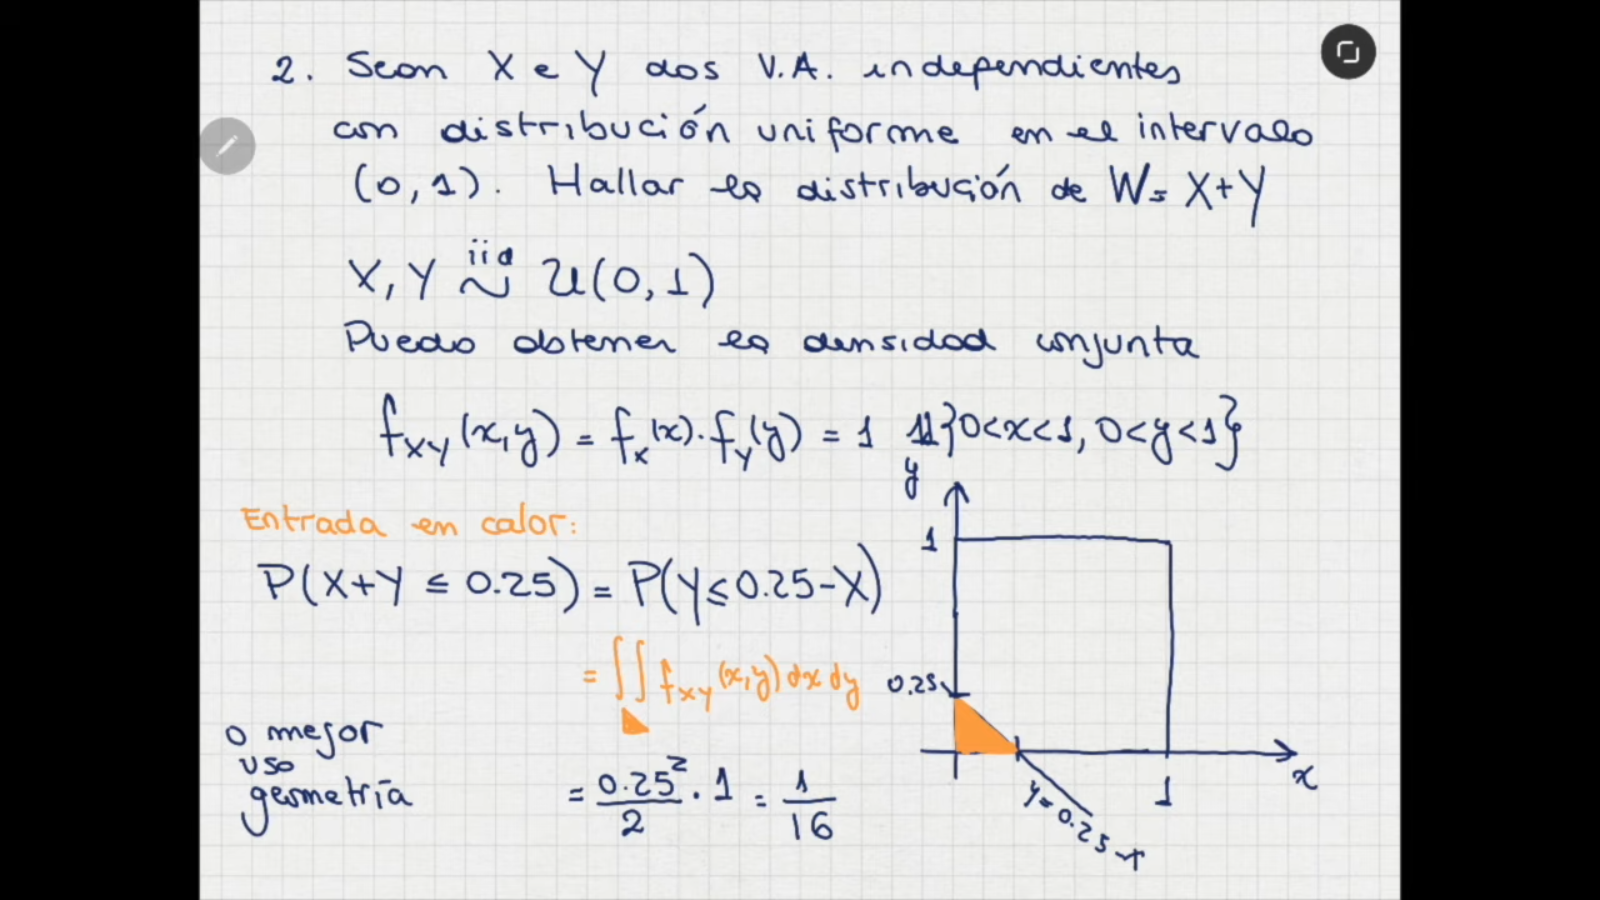 2. Sean X e Y dos V.A. independientes
con distribución uniforme en el intervalo
(0,1). Hallar la distribución de W= X+Y
X, Y iid ~ U(0,1)
Puedo obtener la densidad conjunta
f_XY(x,y) = f_X(x).f_Y(y) = 1 𝟙{0<x<1, 0<y<1}
y
1
Entrada en calor:
P(X+Y ≤ 0.25) = P(Y≤0.25-X)
= ∫∫ f_XY(x,y) dx dy
0.25
o mejor
uso
geometría
= 0.25²/2 . 1 = 1/16
1
x
y=0.25-x